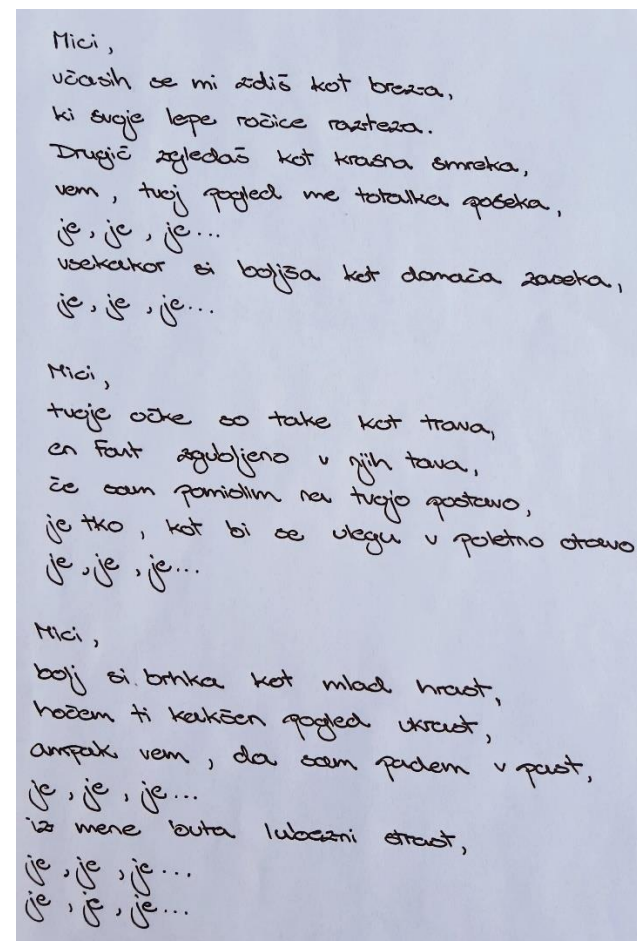 Mici,
včasih se mi zdiš kot breza,
ki svoje lepe ročice razteza.
Drugič zgledaš kot krasna smreka,
vem, tvoj pogled me totalka poseka,
je, je, je...
vsekakor si boljša kot domača zaseka,
je, je, je...
Mici,
tvoje očke so take kot trava,
en fant zgubljeno v njih tava,
če sam pomislim na tvojo postavo,
je tko, kot bi se vlegu v poletno otavo
je, je, je...
Mici,
bolj si brhka kot mlad hrast,
hočem ti kakšen pogled ukrast,
ampak vem, da sam padem v past,
je, je, je...
iz mene buta lubezni strast,
je, je, je...
je, je, je...